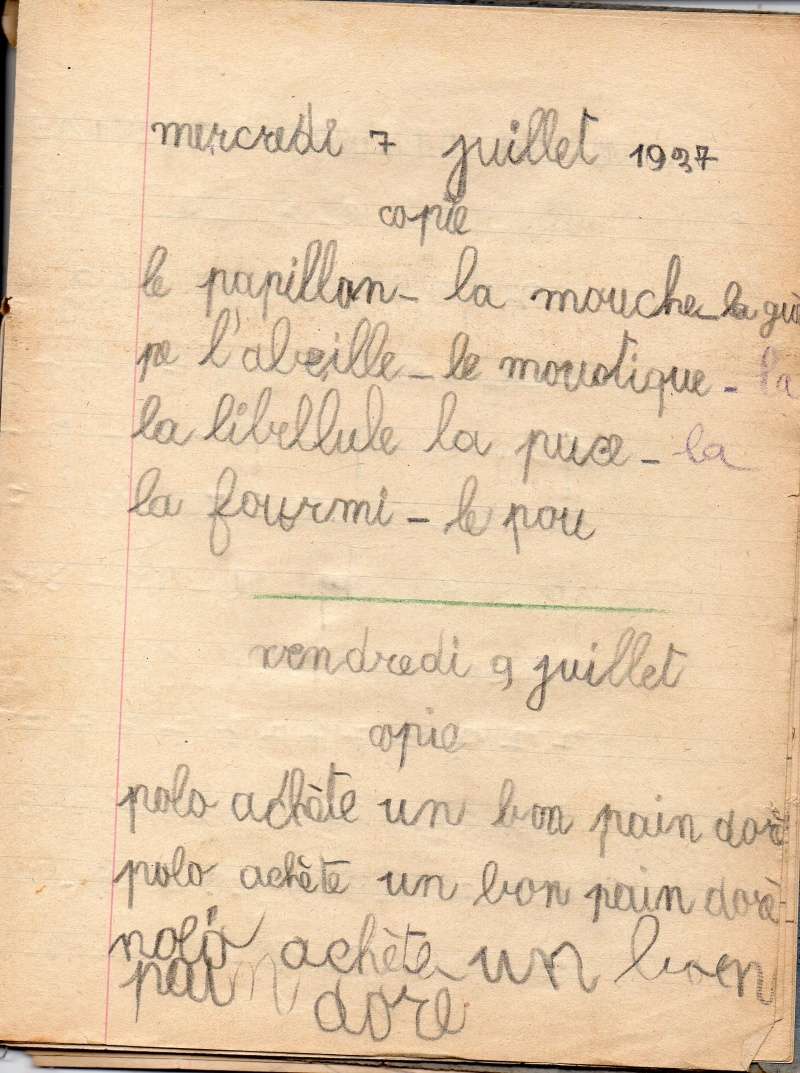 mercredi 7 juillet 1937
copie
le papillon - la mouche - la guê
pe l'abeille - le moustique - la
la libellule la puce - la
la fourmi - le pou
vendredi 9 juillet
copie
polo achète un bon pain doré
polo achète un bon pain doré -
polo achète un bon
pain doré